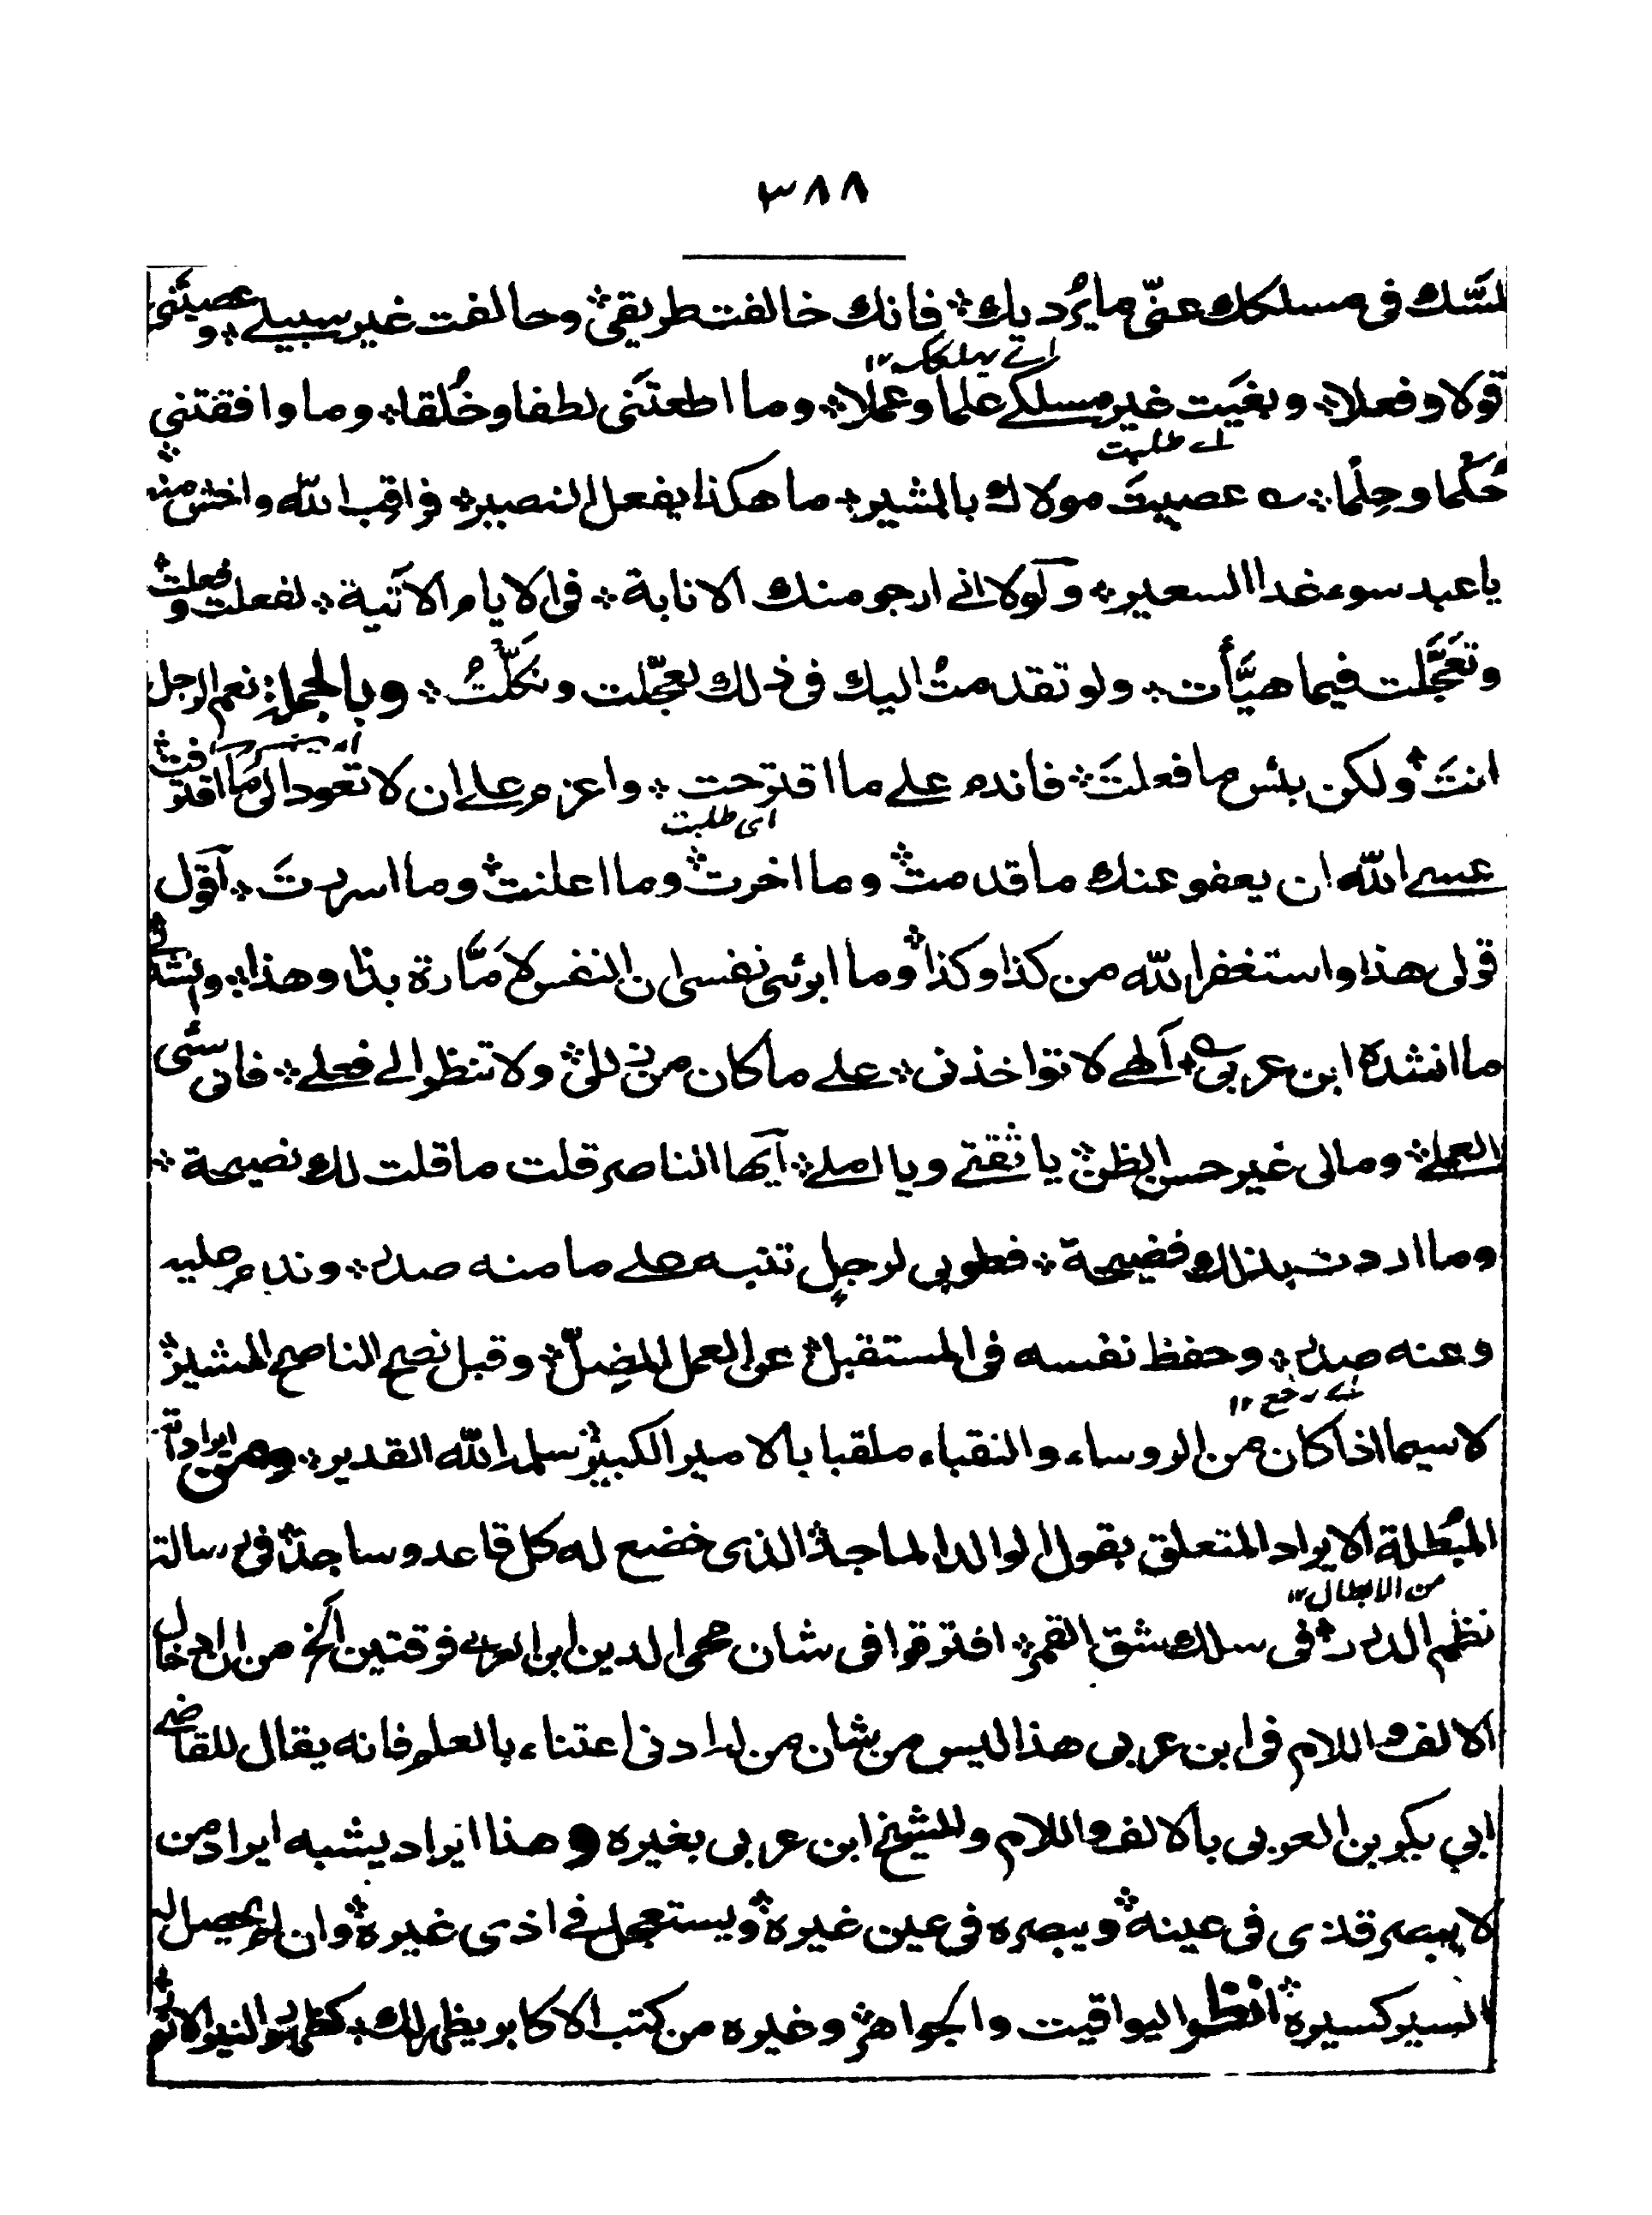 ٣٨٨
لمسّك فى مسلكك عنّى ما يُرديك ؞ فانك خالفت طريقى ؞ وحالفت غير سبيلے ؞ وعصيتَنى
اے يهلكك ١٢
قولا وفعلا ؞ وبغَيت غير مسلكے علما وعملا ؞ وما اطعتَنى لطفا وخُلقا ؞ وما وافقتنى
اے طلبت
حُكما وحِلمًا ؞ ؎ عصيتَ مولاك بالمشير ؞ ما هكذا يفعل النصير ؞ فراقِب الله واخش منه
يا عبد سوء غدا السعير ؞ ولولا انے ارجو منك الانابة ؞ فى الايام الآتية ؞ لفعلت وفعلت ؞
وتَعَجَّلت فيما هيَّأت ؞ ولو تقدمتُ اليك فى ذلك لعجّلت ونكّلتُ ؞ وبالجملة نعم الرجل
انتَ ؞ ولكن بئس ما فعلتَ ؞ فاندم علے ما اقترحت ؞ واعزم علے ان لا تعود الى ما اقترفت ؞
اى طلبت
عسے الله ان يعفو عنك ما قدمت ؞ وما اخرت ؞ وما اعلنت ؞ وما اسررتَ ؞ آقول
قولى هذا واستغفر الله من كذا وكذا ؞ وما ابرئى نفسى ان النفس لامّارة بذا وهذا ؞
ما انشده ابن عربى ؞ آلهے لا تواخذنى ؞ علے ما كان من زللى ؞ ولا تنظر الے فعلے ؞ فانى سئى
العملے ؞ ومالى غير حسن الظن ؞ يا ثقتے ويا املے ؞ آيها الناصر قلت ما قلت لك نصيحة ؞
وما اردت بذلك فضيحة ؞ فطوبى لرجلٍ تنبه علے ما منه صدر ؞ وندم عليه
وعنه صدر ؞ وحفظ نفسه فى المستقبل ؞ عن العمل المضِلّ ؞ وقبل نصح الناصح المشير ؞
اے رجع ١٢
لا سيما اذا كان من الروساء والنقباء ملقبا بالامير الكبير ؞ سلمه الله القدير ؞ ومن ايراداته
المُبطلة الايراد المتعلق بقول الوالد الماجد ؞ الذى خضع له كل قاعد وساجد ؞ فى رسالته
من الابطال ١٢
نظم الدرر ؞ فى سلك شق القمر ؞ افترقوا فى شان محى الدين ابن العربے فرقتين الخ من ان ادخال
الالف واللام فى ابن عربى هذا ليس من شان من له ادنى اعتناء بالعلم فانه يقال للقاضے
ابي بكر بن العربى بالالف واللام وللشيخ ابن عربى بغيره وهذا ايراد يشبه ايراد من
لا يبصر قذى فى عينه ؞ ويبصره فى عين غيره ؞ ويستعجل فے اذى غيره ؞ وان لم يحصل له
السير كسيره ؞ انظر اليواقيت والجواهر ؞ وغيره من كتب الاكابر يظهر لك ؞ كظهور النير الاتم ؞